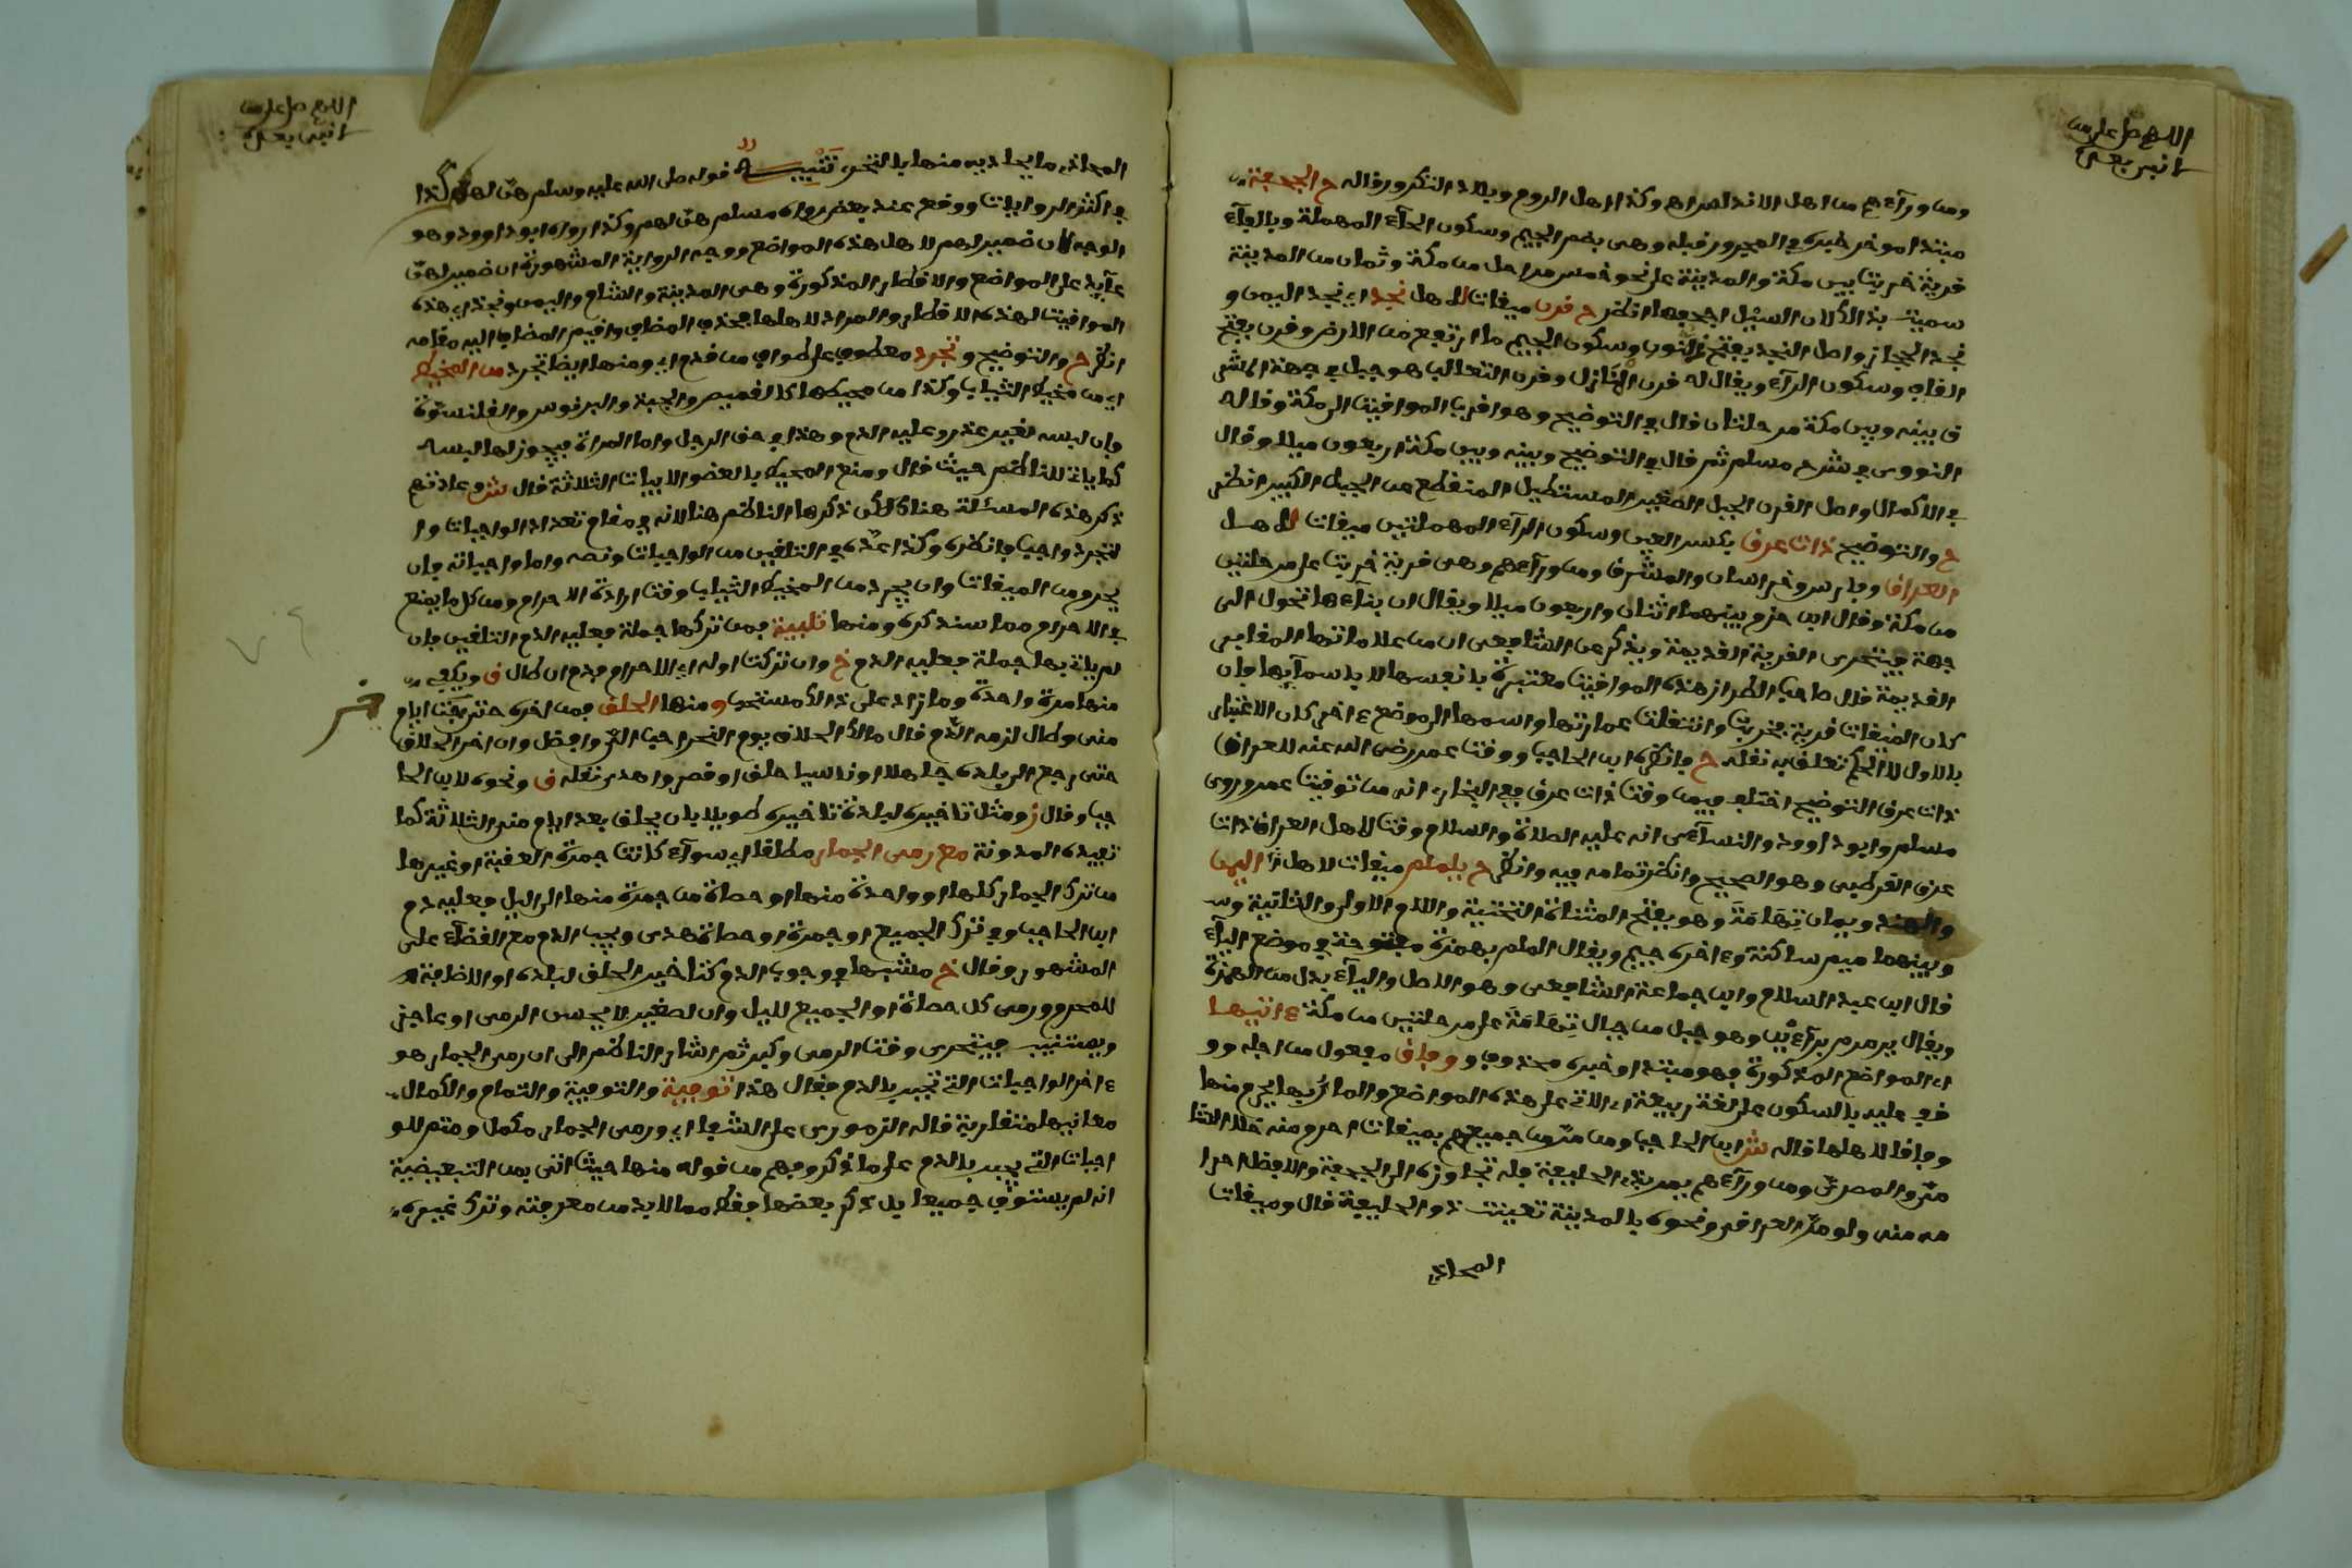 ومن ورآءهم من اهل الاندلس وكذا اهل الروم وبلاد التكرور وقاله ح الجحفة
مبتدا موخر خبره في المجرور قبله وهي بضم الجيم وسكون الحآء المهملة وبالفآء
قرية خربت بين مكة والمدينة على نحو خمس مراحل من مكة وثمان من المدينة
سميت بذالك لان السيل اجحفها انظر ح قرن ميقات لاهل نجد اي نجد اليمن و
نجد الحجاز واصل النجد بفتح النون وسكون الجيم ما ارتفع من الارض وقرن بفتح
القاف وسكون الرآء ويقال له قرن المنازل وقرن الثعالب هو جبل في جهة المشر
ق بينه وبين مكة مرحلتان قال في التوضيح وهو اقرب المواقيت الى مكة وقاله
النووي في شرح مسلم ثم قال في التوضيح وبينه وبين مكة اربعون ميلا وقال
في الاكمال واصل القرن الجبل الصغير المستطيل المنقطع من الجبل الكبير انظر
ح والتوضيح ذات عرق بكسر العين وسكون الرآء المهملتين ميقات لاهل
العراق وفارس وخراسان والمشرق ومن ورآءهم وهي قرية خربت على مرحلتين
من مكة وقال ابن حزم بينهما اثنان واربعون ميلا ويقال ان بنآءها تحول الى
جهة فيتحرى القرية القديمة ويذكر عن الشافعي ان من علاماتها المقابر
القديمة قال صاحب الطراز هذه المواقيت معتبرة بانفسها لا باسمآيها فان
كان الميقات قرية فخربت وانتقلت عمارتها واسمها الى موضع ءاخر كان الاعتبار
بالاول لان الحكم تعلق به نقله ح وانظره ابن الحاجب ووقت عمر رضي الله عنه للعراق
ذات عرق التوضيح اختلف فيمن وقت ذات عرق ففي البخاري انه من توقيت عمر وروى
مسلم وابو داوود والنسآءي انه عليه الصلاة والسلام وقت لاهل العراق ذات
عرق القرطبي وهو الصحيح وانظر تمامه فيه وانظر ح يلملم ميقات لاهل اليمن
والهند ويمان تهامة وهو بفتح المثناة التحتية واللام الاولى والثانية و
وبينهما ميم ساكنة وءاخره ميم ويقال الملم بهمزة مفتوحة في موضع اليآء
قال ابن عبد السلام وابن جماعة الشافعي وهو الاصل واليآء بدل من الهمزة
ويقال يرمرم برآءين وهو جبل من جبال تهامة على مرحلتين من مكة ءاتيها
اي المواضع المذكورة فهو مبتدا وخبره محذوف ووفاق مفعول من اجله وو
قف عليه بالسكون على لغة ربيعة اي الاتي على هذه المواضع والمار بها يحرم منها
وفاقا لاهلها قاله ش ابن الحاجب ومن مر من جميعهم بميقات احرم منه خلا الشا
مي والمصري ومن ورآءهم يمر بذي الحليفة فله تجاوزه الى الجحفة والافضل احرا
مه منه ولو مر العراقي ونحوه بالمدينة تعينت ذو الحليفة قال وميقات
المحاذي
اللهم صل على من
لا نبي بعده
المحاذي ما يحاذيه منها بالتحري تنبيه قوله صلى الله عليه وسلم هن لهم كذا
في اكثر الروايات ووقع عند بعض رواة مسلم هن لهم وكذا رواه ابو داوود وهو
الوجه لان ضمير لهم لاهل هذه المواضع ووجه الرواية المشهورة ان ضمير لهن
عآيد على المواضع والاقطار المذكورة وهي المدينة والشام واليمن ونجد اي هذه
المواقيت لهذه الاقطار والمراد لاهلها فحذف المضاف واقيم المضاف اليه مقامه
انظر ح والتوضيح وتجرد معطوف على طواف من قدم اي ومنها ايضا تجرد من المخيط
اي من مخيط الثياب وكذا من محيطها كالقميص والجبة والبرنوس والقلنسوة
وان لبسه لغير عذر وعليه الدم وهذا في حق الرجل واما المراة فيجوز لها لبسه
كما ياتي للناظم حيث قال ومنع المحيط بالعضو الابيات الثلاثة قال ش وعادتهم
ذكر هذه المسئلة هناك لكن ذكرها الناظم هنا لانه في مقام تعداد الواجبات وا
لتجرد واجب وانظره وكذا عده في التلقين من الواجبات ونصه واما واجباته فان
يحرم من الميقات وان يجرد من المخيط الثياب وقت ارادة الاحرام ومن كل ما يمنع
في الاحرام مما سنذكره ومنها تلبية فمن تركها جملة فعليه الدم التلقين فان
لم يات بها جملة فعليه الدم خ وان تركت اوله اي الاحرام فدم ان طال ق ويكفي
منها مرة واحدة وما زاد على ذالك مستحب ومنها الحلق فمن اخره حتى خرجت ايام
منى وطال لزمه الدم قال مالك الحلاق يوم النحر احب الي وافضل وان اخر الحلاق
حتى رجع الى بلده جاهلا او ناسيا حلق او قصر واهدى نقله ق ونحوه لابن الحا
جب وقال ز ومثل تاخيره لبلده تاخيره طويلا بان يحلق بعد ايام منى الثلاثة كما
تفيده المدونة مع رمي الجمار مطلقا اي سوآء كانت جمرة العقبة او غيرها
من ترك الجمار كلها او واحدة منها او حصاة من جمرة منها الى الليل فعليه دم
ابن الحاجب وفي ترك الجميع او جمرة او حصاة هدي ويجب الدم مع القضآء على
المشهور وقال خ مشبها في وجوب الدم كتاخير الحلق لبلده او الافاضة
للمحرم ورمي كل حصاة او الجميع لليل وان لصغير لا يحسن الرمي او عاجز
ويستنيب فيتحرى وقت الرمي وكبر ثم اشار الناظم الى ان رمي الجمار هو
ءاخر الواجبات التي تجبر بالدم فقال هذا توفية والتوفية والتمام والكمال
معانيها متقاربة قاله الزموري على الشفا اي ورمي الجمار مكمل ومتم للو
اجبات التي تجبر بالدم على ما ذكر وفهم من قوله منها حيث اتى بمن التبعيضية
انه لم يستوف جميعها بل ذكر بعضها فقط مما لا بد من معرفته وترك غيره
اللهم صل على من
لا نبي بعده